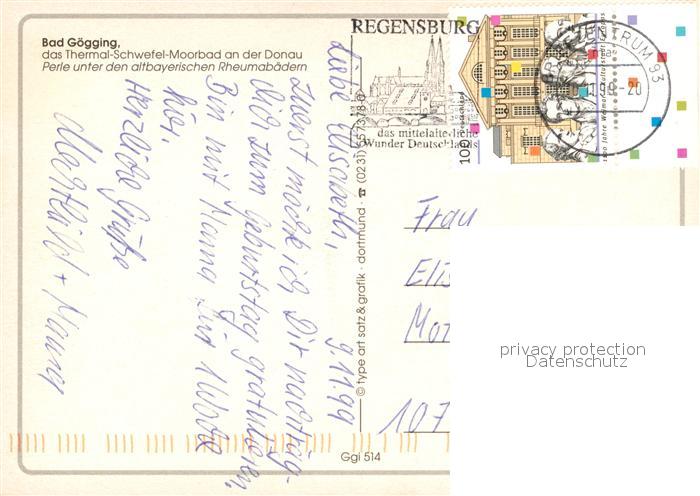 Bad Gögging,
das Thermal-Schwefel-Moorbad an der Donau
Perle unter den altbayerischen Rheumabädern
REGENSBURG
das mittelalterliche
Wunder Deutschlands
100
9.11.99
Liebe Elisabeth,
zuerst möchte ich Dir nachträg-
lich zum Geburtstag gratulieren.
Bin mit Mama für 1 Woche
hier.
Herzliche Grüße
Mechthild + Mama
© type art satz & grafik · dortmund · ☎ (0231) 557378-0
Frau
Elis
Mo
107
Ggi 514
privacy protection
Datenschutz